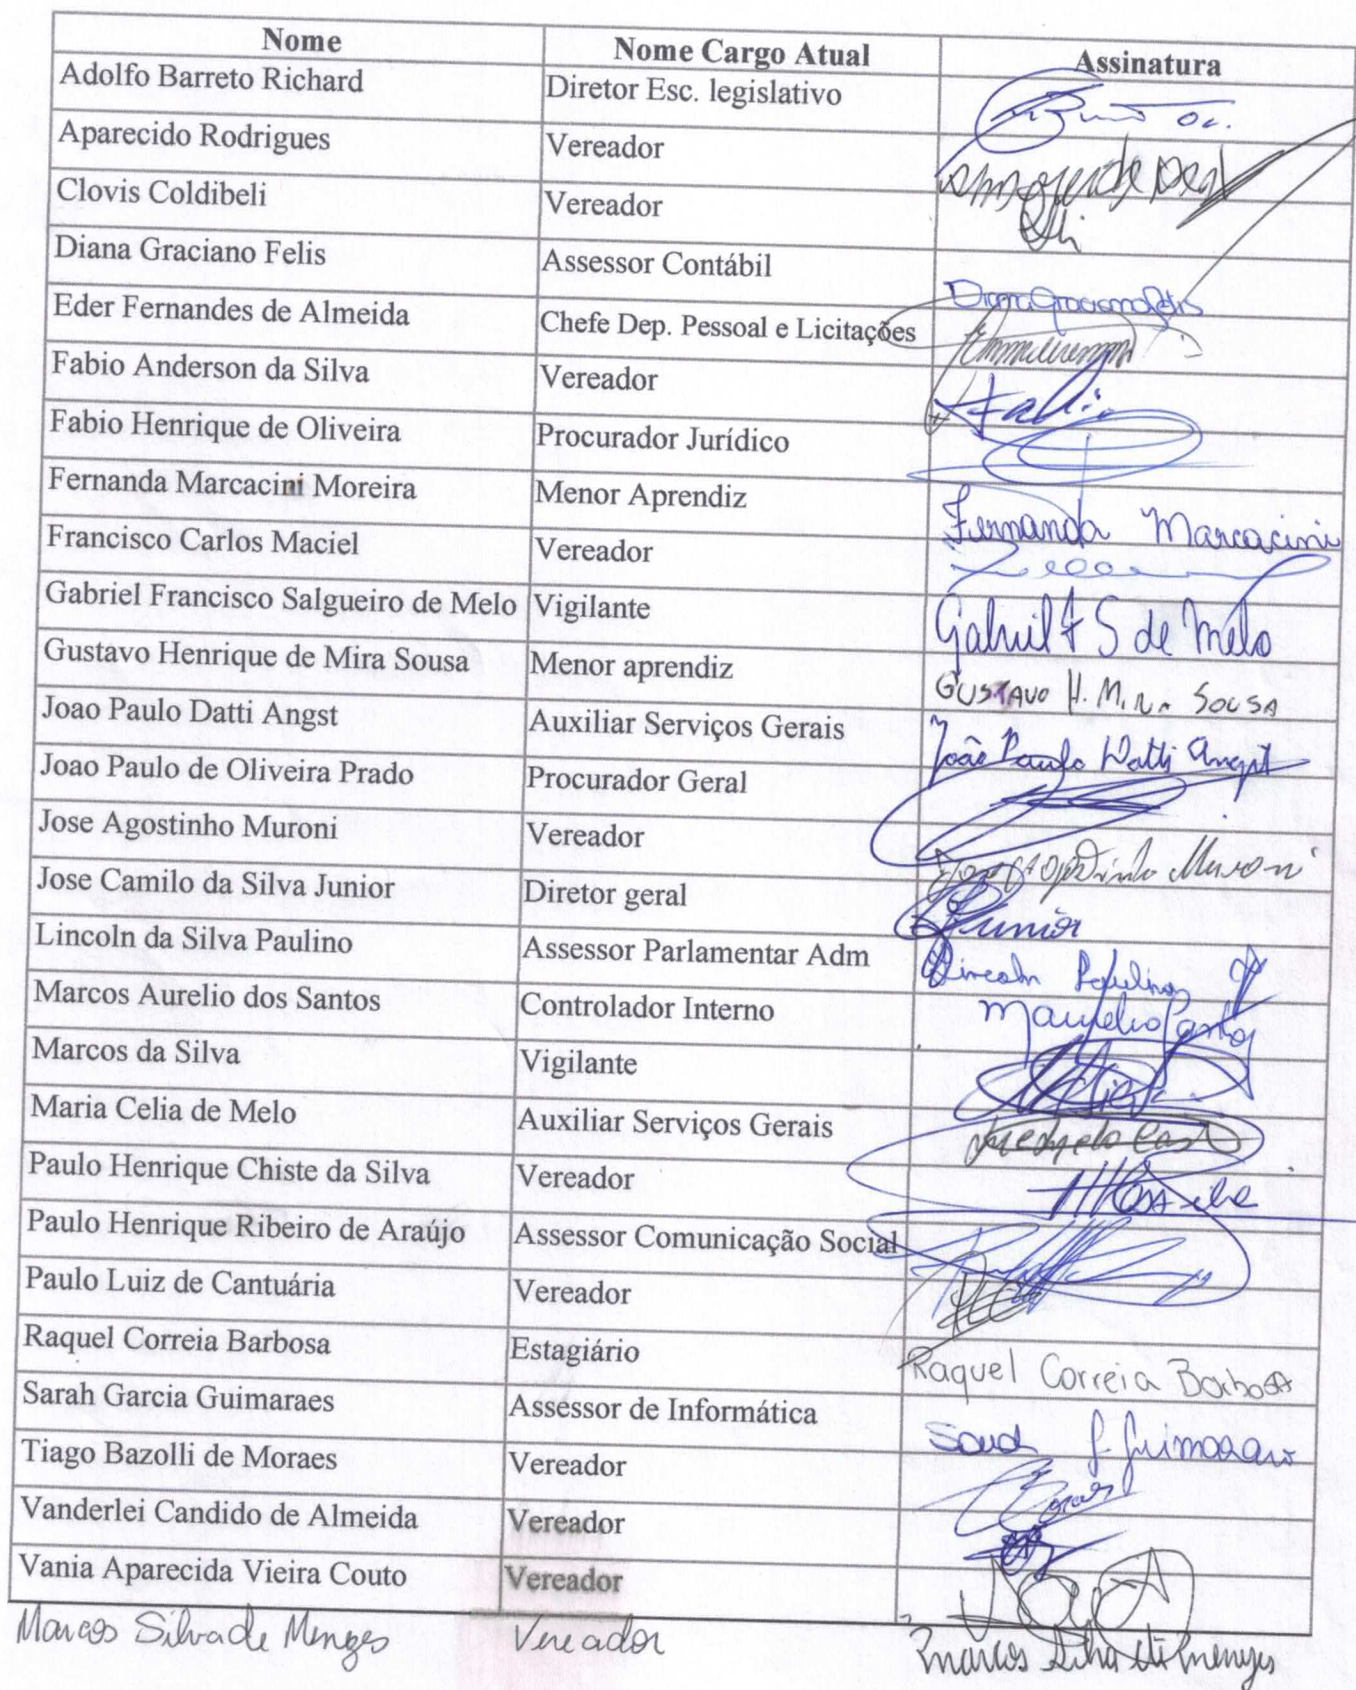 Nome Nome Cargo Atual Assinatura
Adolfo Barreto Richard Diretor Esc. legislativo
Aparecido Rodrigues Vereador
Clovis Coldibeli Vereador
Diana Graciano Felis Assessor Contábil Diana Graciano Felis
Eder Fernandes de Almeida Chefe Dep. Pessoal e Licitações
Fabio Anderson da Silva Vereador
Fabio Henrique de Oliveira Procurador Jurídico
Fernanda Marcacini Moreira Menor Aprendiz Fernanda Marcacini
Francisco Carlos Maciel Vereador
Gabriel Francisco Salgueiro de Melo Vigilante Gabriel F S de Melo
Gustavo Henrique de Mira Sousa Menor aprendiz GUSTAVO H. MIRA SOUSA
Joao Paulo Datti Angst Auxiliar Serviços Gerais João Paulo Datti Angst
Joao Paulo de Oliveira Prado Procurador Geral
Jose Agostinho Muroni Vereador Jose Agostinho Muroni
Jose Camilo da Silva Junior Diretor geral Junior
Lincoln da Silva Paulino Assessor Parlamentar Adm Lincoln Paulino
Marcos Aurelio dos Santos Controlador Interno
Marcos da Silva Vigilante
Maria Celia de Melo Auxiliar Serviços Gerais
Paulo Henrique Chiste da Silva Vereador
Paulo Henrique Ribeiro de Araújo Assessor Comunicação Social
Paulo Luiz de Cantuária Vereador
Raquel Correia Barbosa Estagiário Raquel Correia Barbosa
Sarah Garcia Guimaraes Assessor de Informática Sarah G. Guimaraes
Tiago Bazolli de Moraes Vereador
Vanderlei Candido de Almeida Vereador
Vania Aparecida Vieira Couto Vereador
Marcos Silva de Menezes Vereador Marcos Silva de Menezes